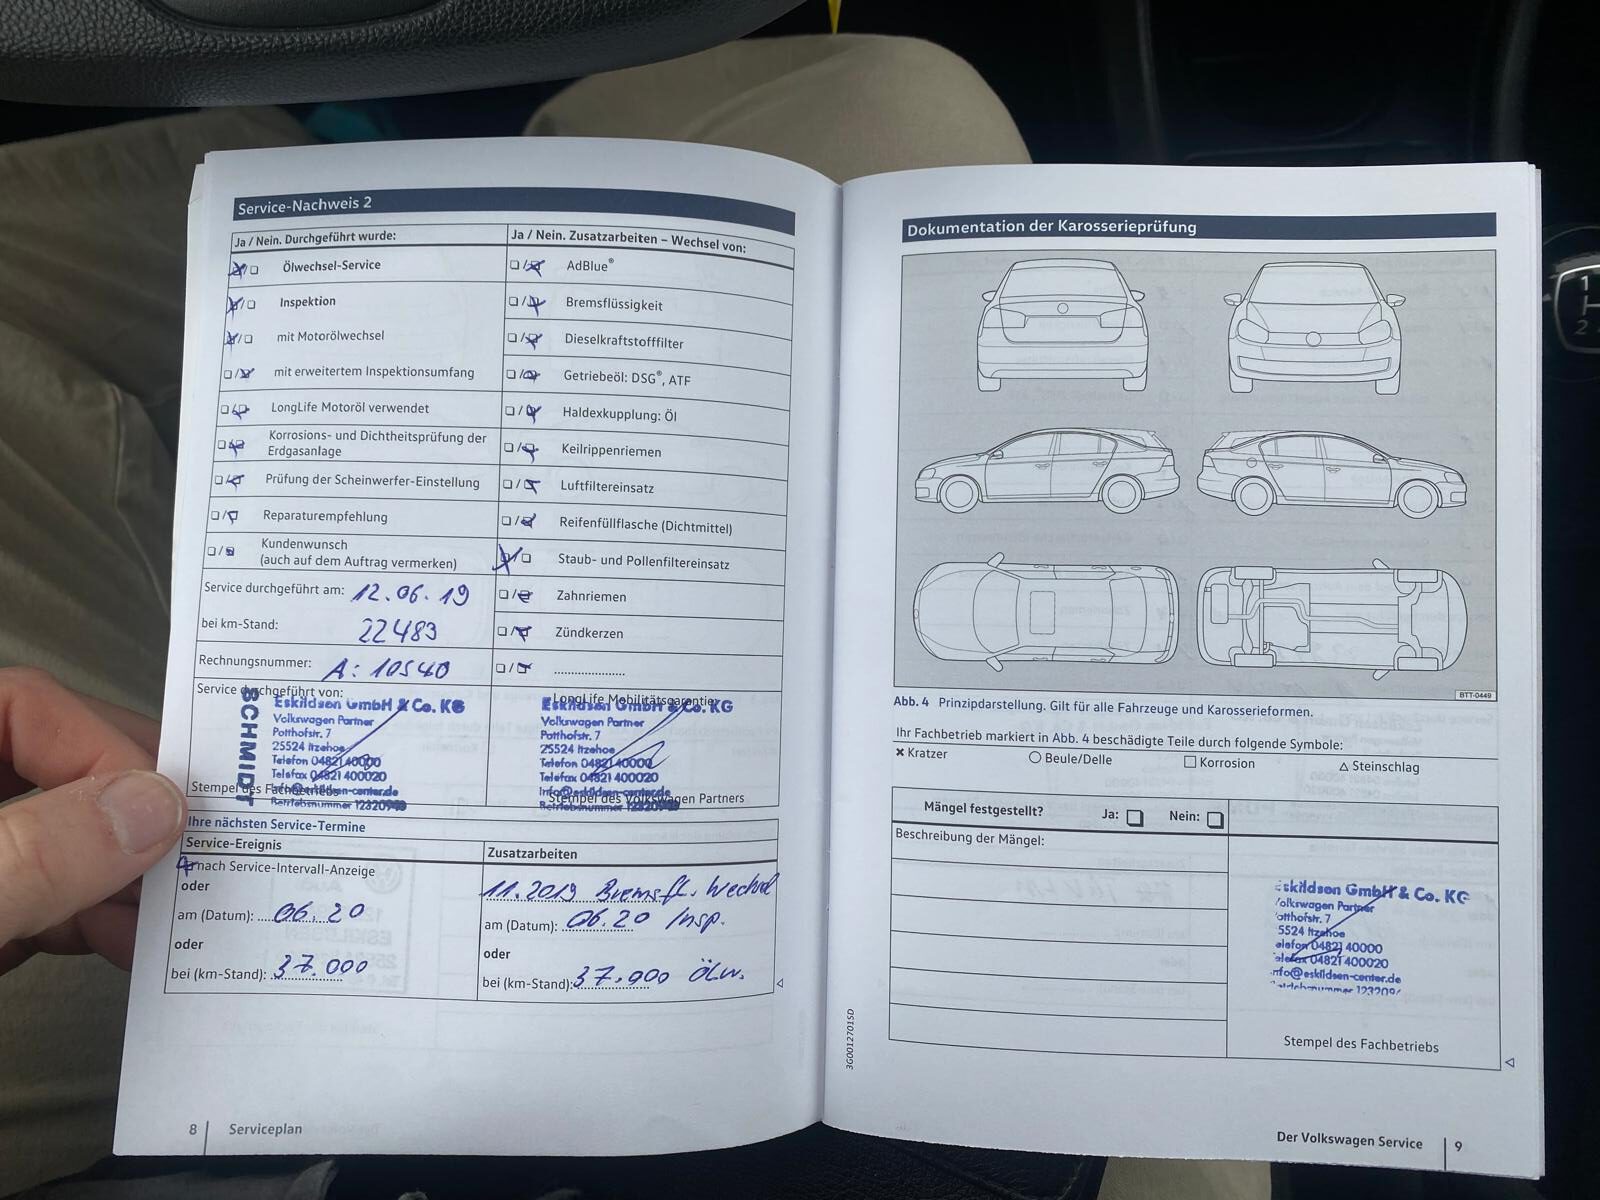 Service-Nachweis 2
Ja / Nein. Durchgeführt wurde:
Ölwechsel-Service
Inspektion
mit Motorölwechsel
mit erweitertem Inspektionsumfang
LongLife Motoröl verwendet
Korrosions- und Dichtheitsprüfung der
Erdgasanlage
Prüfung der Scheinwerfer-Einstellung
Reparaturempfehlung
Kundenwunsch
(auch auf dem Auftrag vermerken)
Service durchgeführt am: 12.06.19
bei km-Stand: 22483
Rechnungsnummer: A: 10540
Service durchgeführt von:
SCHMIDT
Eskildsen GmbH & Co. KG
Volkswagen Partner
Potthofstr. 7
25524 Itzehoe
Telefon 04821 40000
Telefax 04821 400020
Info@eskildsen-center.de
Betriebsnummer
Stempel des Fachbetriebs
Ja / Nein. Zusatzarbeiten – Wechsel von:
AdBlue®
Bremsflüssigkeit
Dieselkraftstofffilter
Getriebeöl: DSG®, ATF
Haldexkupplung: Öl
Keilrippenriemen
Luftfiltereinsatz
Reifenfüllflasche (Dichtmittel)
Staub- und Pollenfiltereinsatz
Zahnriemen
Zündkerzen
LongLife Mobilitätsgarantie
Eskildsen GmbH & Co. KG
Volkswagen Partner
Potthofstr. 7
25524 Itzehoe
Telefon 04821 40000
Telefax 04821 400020
Info@eskildsen-center.de
Betriebsnummer
Stempel des Volkswagen Partners
Ihre nächsten Service-Termine
Service-Ereignis
nach Service-Intervall-Anzeige
oder
am (Datum): 06.20
oder
bei (km-Stand): 37.000
Zusatzarbeiten
11.2019 Bremsfl. Wechsel
am (Datum): 06.20 Insp.
oder
bei (km-Stand): 37.000 Ölw.
8 Serviceplan
Dokumentation der Karosserieprüfung
BTT-0449
Abb. 4 Prinzipdarstellung. Gilt für alle Fahrzeuge und Karosserieformen.
Ihr Fachbetrieb markiert in Abb. 4 beschädigte Teile durch folgende Symbole:
Kratzer Beule/Delle Korrosion Steinschlag
Mängel festgestellt? Ja: Nein:
Beschreibung der Mängel:
eskildsen GmbH & Co. KG
Volkswagen Partner
Potthofstr. 7
5524 Itzehoe
elefon 04821 40000
elefax 04821 400020
nfo@eskildsen-center.de
Stempel des Fachbetriebs
3G0012701SD
Der Volkswagen Service 9